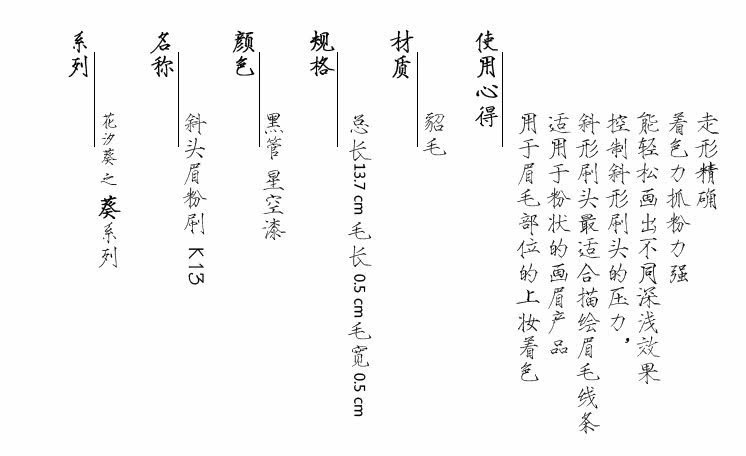 系列
花汐葵之葵系列
名称
斜头眉粉刷 K13
颜色
黑管 星空漆
规格
总长13.7 cm 毛长 0.5 cm 毛宽 0.5 cm
材质
貂毛
使用心得
用于眉毛部位的上妆着色
适用于粉状的画眉产品
斜形刷头最适合描绘眉毛线条
控制斜形刷头的压力，
能轻松画出不同深浅效果
着色力抓粉力强
走形精确